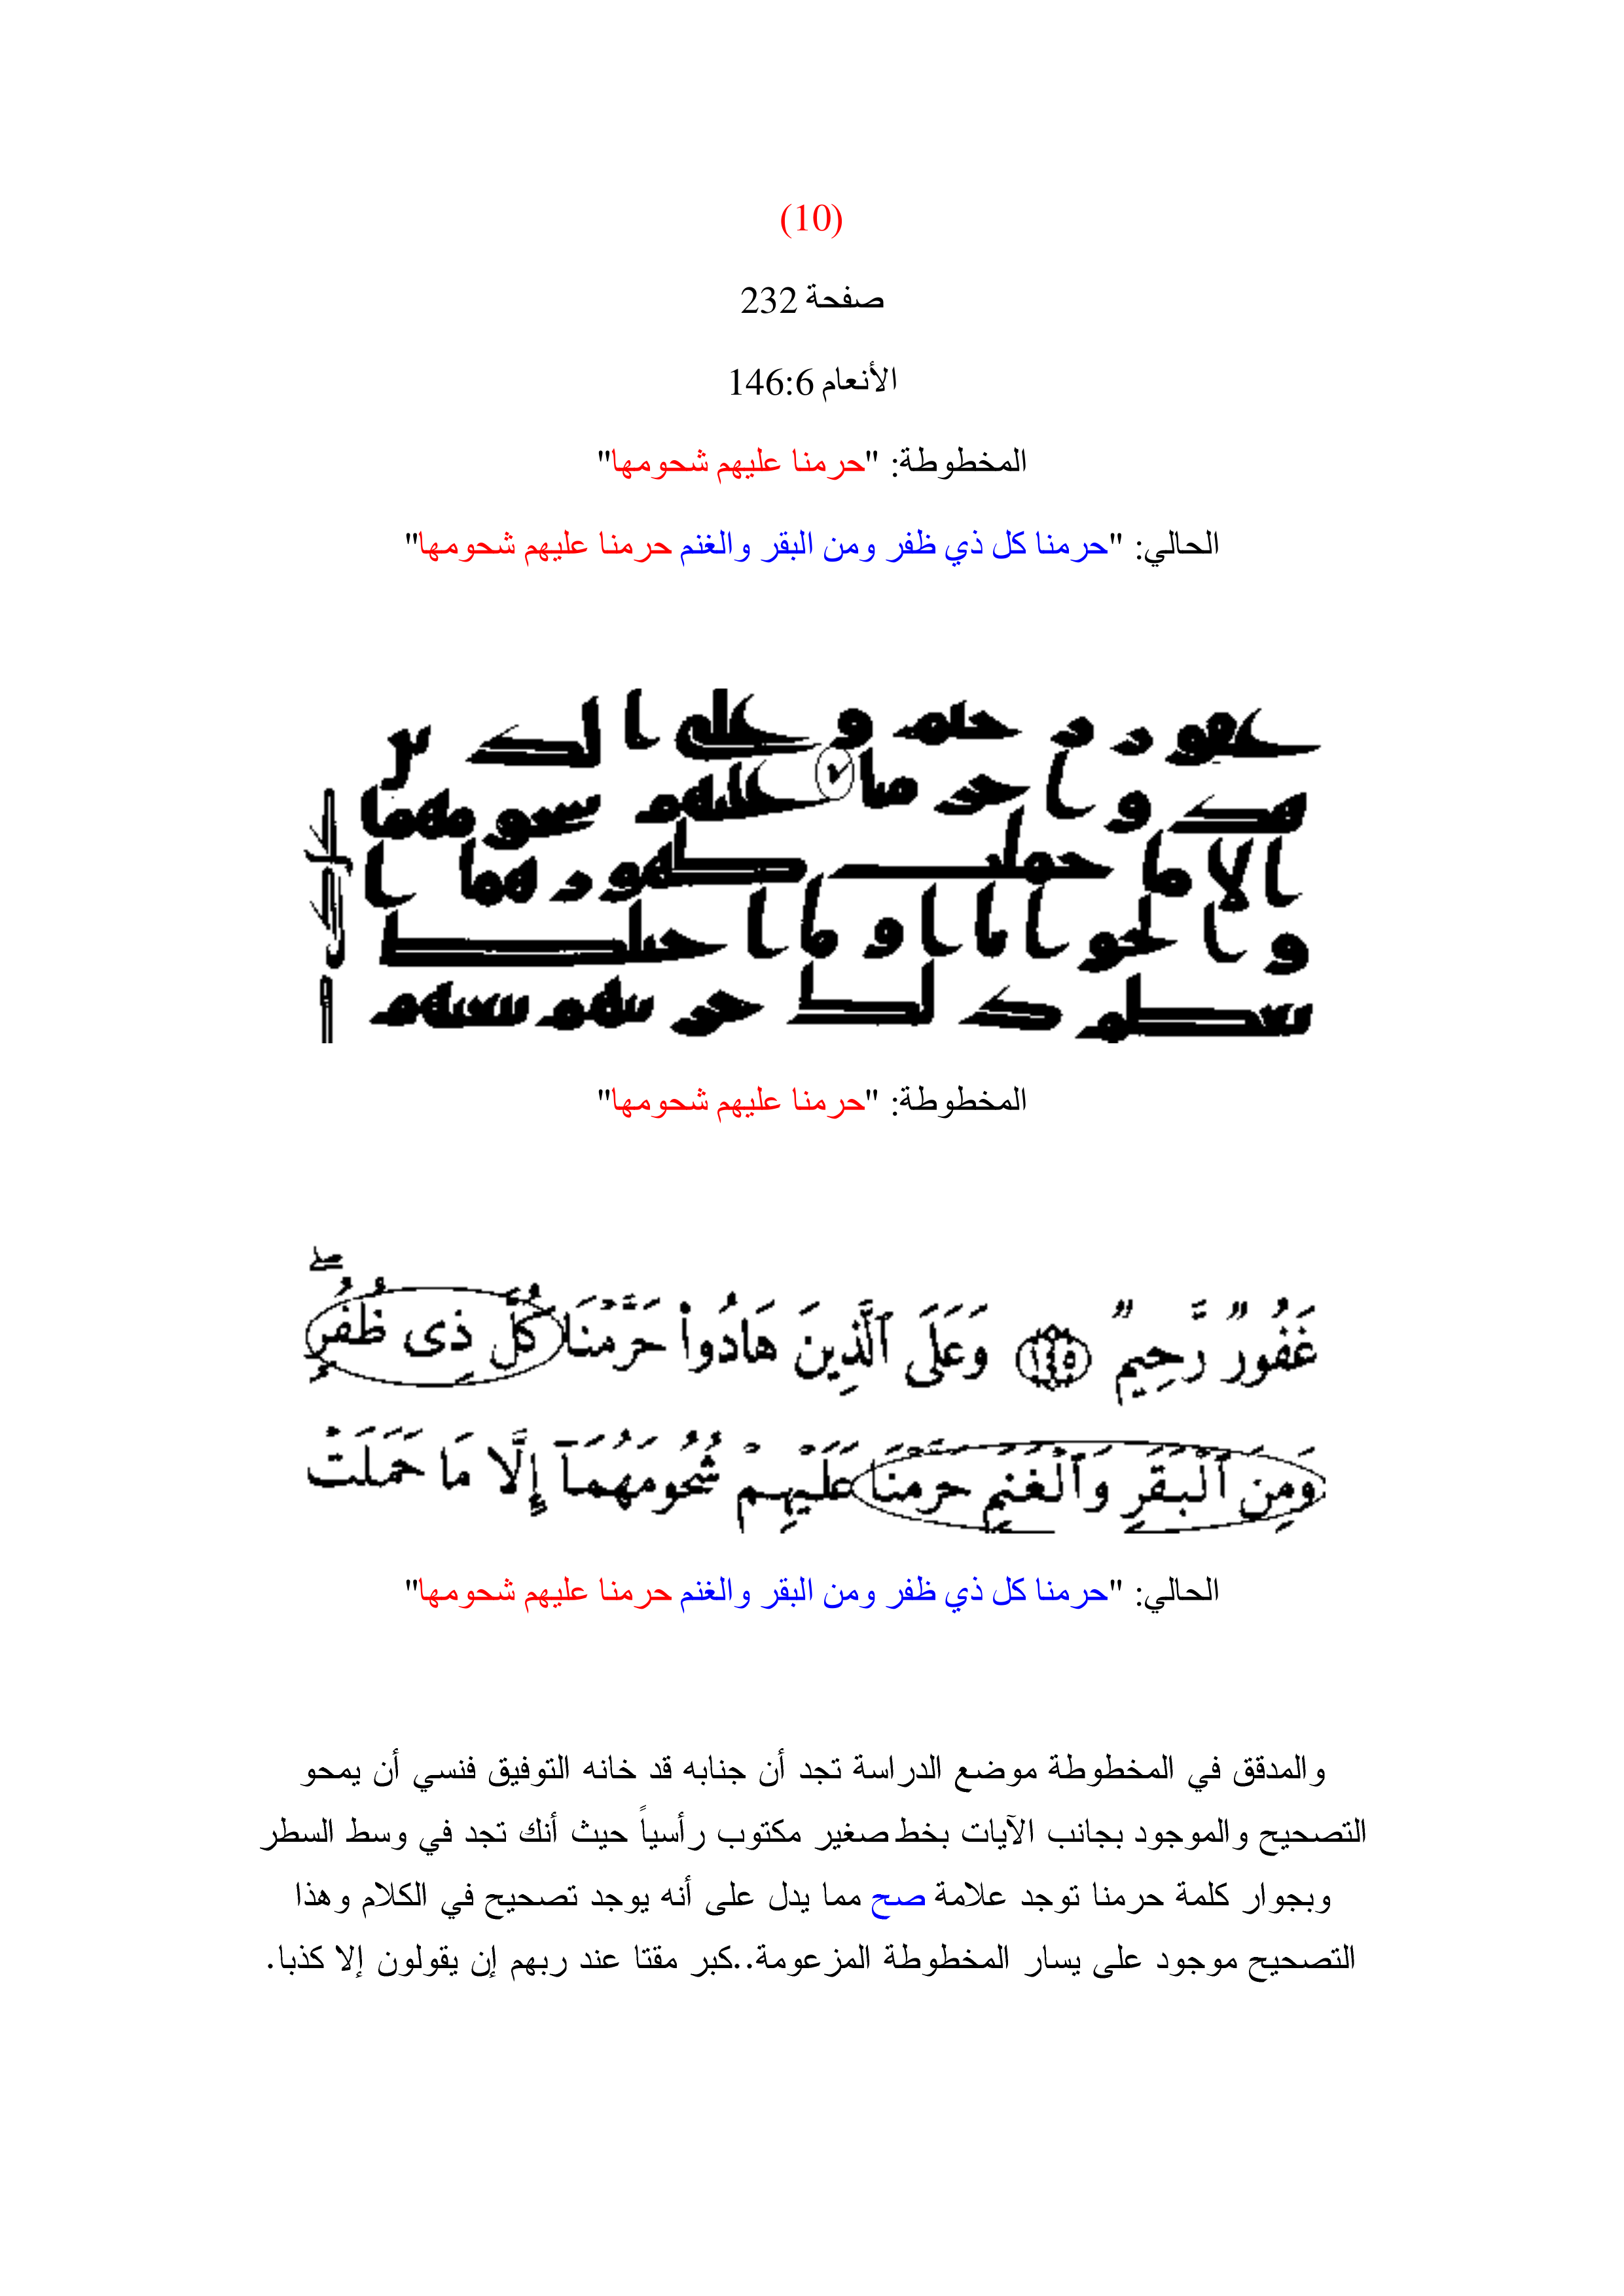 (10)
صفحة 232
الأنعام 146:6
المخطوطة: "حرمنا عليهم شحومها"
الحالي: "حرمنا كل ذي ظفر ومن البقر والغنم حرمنا عليهم شحومها"
عفور رحیم و علی الذیں
هادوا حرمنا علیهم سحومهما
الا ما حملت طهورهما ا
و الحوایا او ما احتلط
بعظم ذلك حزینهم ببغیهم
المخطوطة: "حرمنا عليهم شحومها"
غَفُورٌ رَّحِيمٌ ١٤٥ وَعَلَى ٱلَّذِينَ هَادُواْ حَرَّمْنَا كُلَّ ذِى ظُفُرٍۖ
وَمِنَ ٱلْبَقَرِ وَٱلْغَنَمِ حَرَّمْنَا عَلَيْهِمْ شُحُومَهُمَآ إِلَّا مَا حَمَلَتْ
الحالي: "حرمنا كل ذي ظفر ومن البقر والغنم حرمنا عليهم شحومها"
والمدقق في المخطوطة موضع الدراسة تجد أن جنابه قد خانه التوفيق فنسي أن يمحو
التصحيح والموجود بجانب الآيات بخط صغير مكتوب رأسياً حيث أنك تجد في وسط السطر
وبجوار كلمة حرمنا توجد علامة صح مما يدل على أنه يوجد تصحيح في الكلام وهذا
التصحيح موجود على يسار المخطوطة المزعومة..كبر مقتا عند ربهم إن يقولون إلا كذبا.